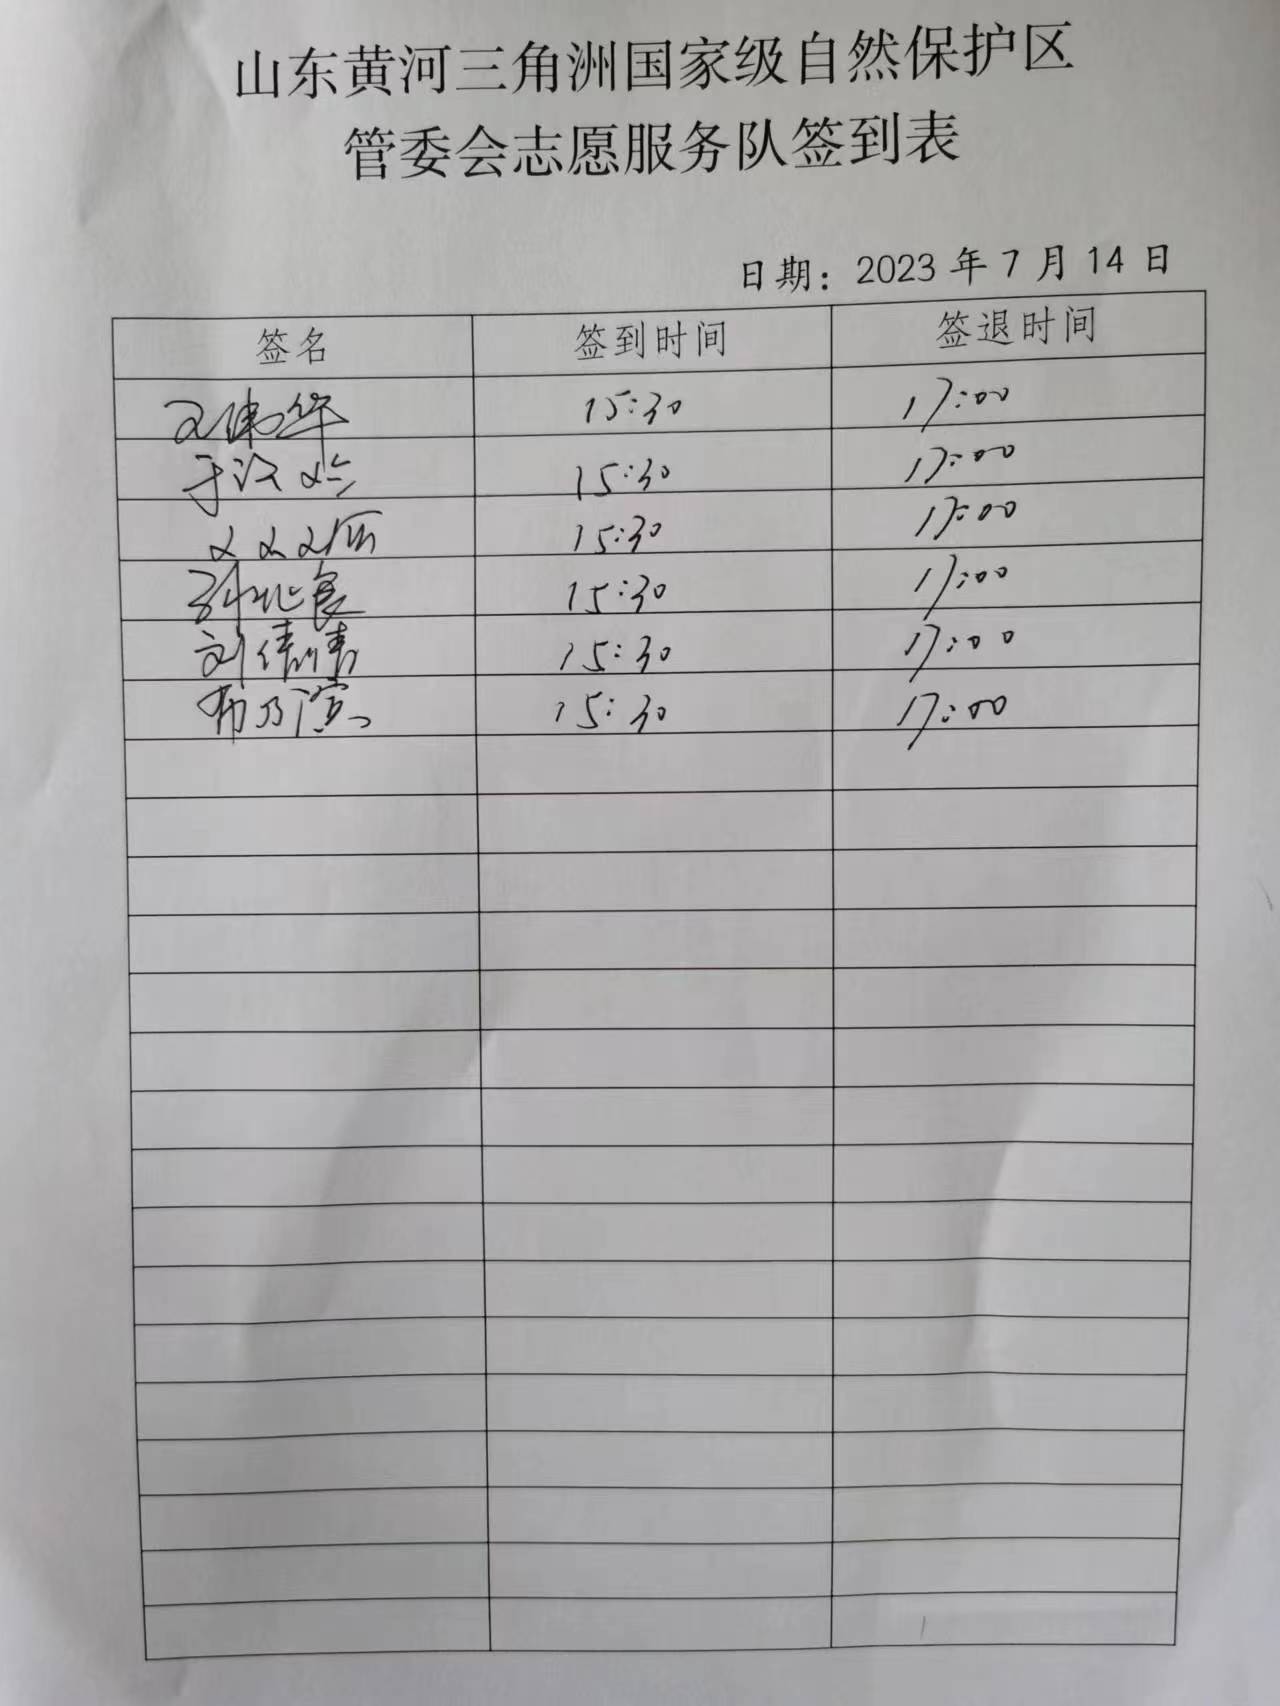 山东黄河三角洲国家级自然保护区
管委会志愿服务队签到表
日期：2023年7月14日
签名 签到时间 签退时间
15:30 17:00
于汉 15:30 17:00
15:30 17:00
孙 15:30 17:00
刘倩倩 15:30 17:00
布乃滨 15:30 17:00